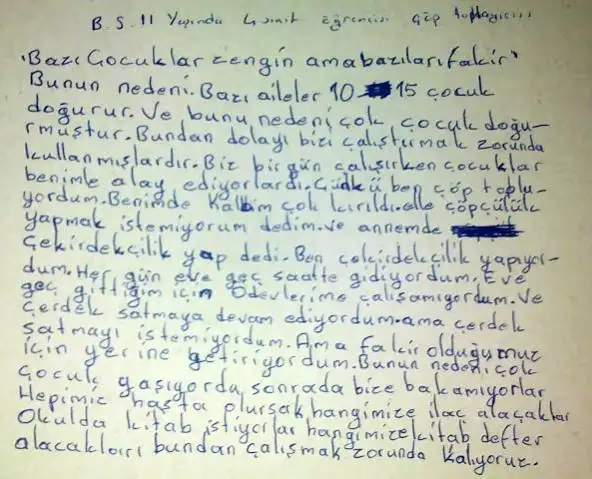 B.S. 11 Yaşında 4 sınıf öğrencisi çöp toplayıcısı
"Bazı Çocuklar zengin ama bazıları fakir"
Bunun nedeni. Bazı aileler 10 15 çocuk
doğurur. Ve bunu nedeni çok çocuk doğu-
rmuştur. Bundan dolayı bizi çalıştırmak zorunda
kullanmışlardır. Biz bir gün çalışırken çocuklar
benimle alay ediyorlardı. Çüdkü ben çöp toplu-
yordum. Benimde Kalbim çok kırıldı. elle çöpçülük
yapmak istemiyorum dedim. ve annemde
Çekirdekçilik yap dedi. Ben çekirdekçilik yapıyor-
dum. Her gün eve geç saatte gidiyordum. Eve
geç gittiğim için Ödevlerime çalışamıyordum. Ve
çerdek satmaya devam ediyordum. ama çerdek
satmayı istemiyordum. Ama fakir olduğumuz
için yerine getiriyordum. Bunun nedeni çok
çocuk yaşıyordu, sonrada bize bakamıyorlar
Hepimiz hasta olursak, hangimize ilaç alacaklar
Okulda kitab istiyorlar hangimize kitab defter
alacakları bundan çalışmak zorunda kalıyoruz.